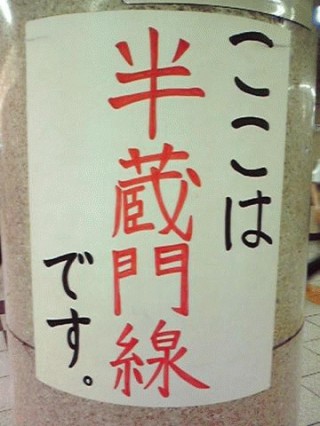 ここは
半蔵門線
です。